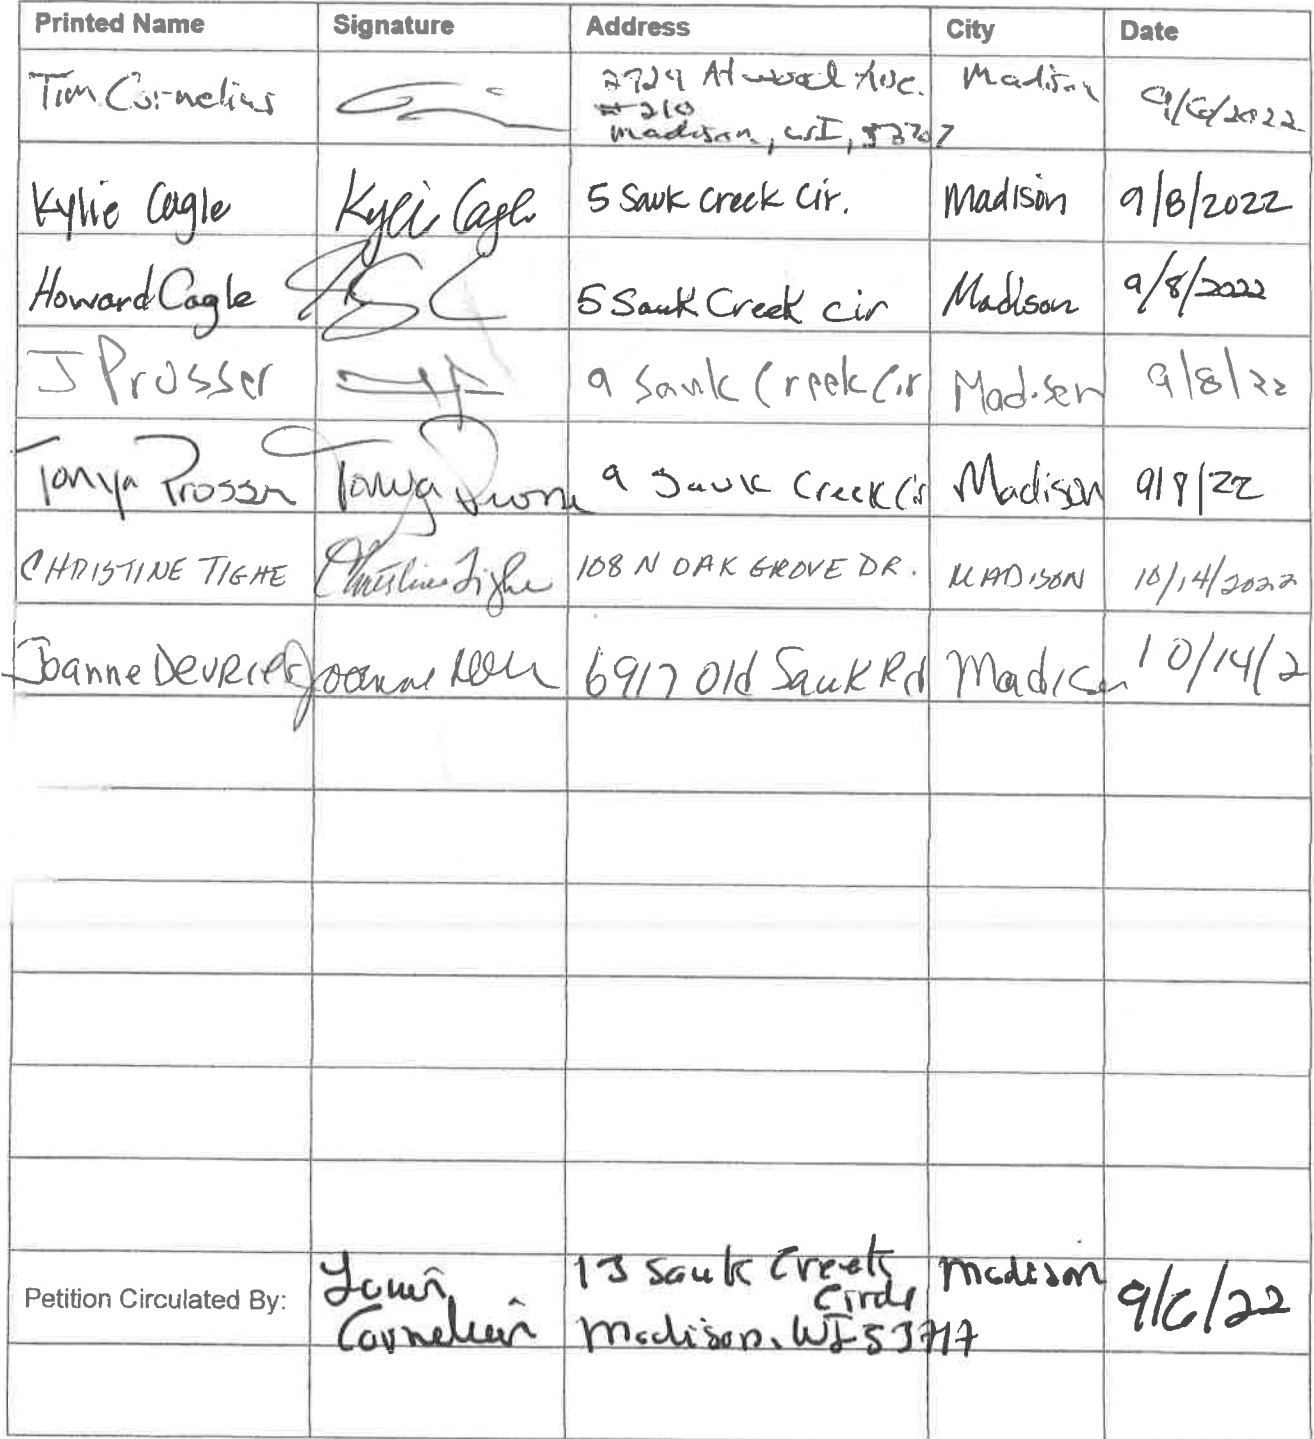 Printed Name Signature Address City Date
Tim Cornelius 2929 Atwood Ave. Madison 9/6/2022
#210
Madison, WI, 53707
Kylie Cagle Kylie Cagle 5 Sauk Creek Cir. Madison 9/8/2022
Howard Cagle 5 Sauk Creek cir Madison 9/8/2022
J Prosser 9 Sauk Creek Cir Madison 9/8/22
Tonya Prosser Tonya 9 Sauk Creek Cir Madison 9/8/22
CHRISTINE TIGHE Christine Tighe 108 N OAK GROVE DR. MADISON 10/14/2022
Joanne DeVRies Joanne 6917 Old Sauk Rd Madison 10/14/2
Petition Circulated By: 13 Sauk Creek Madison 9/6/22
Circle
Cornelius Madison, WI 53717